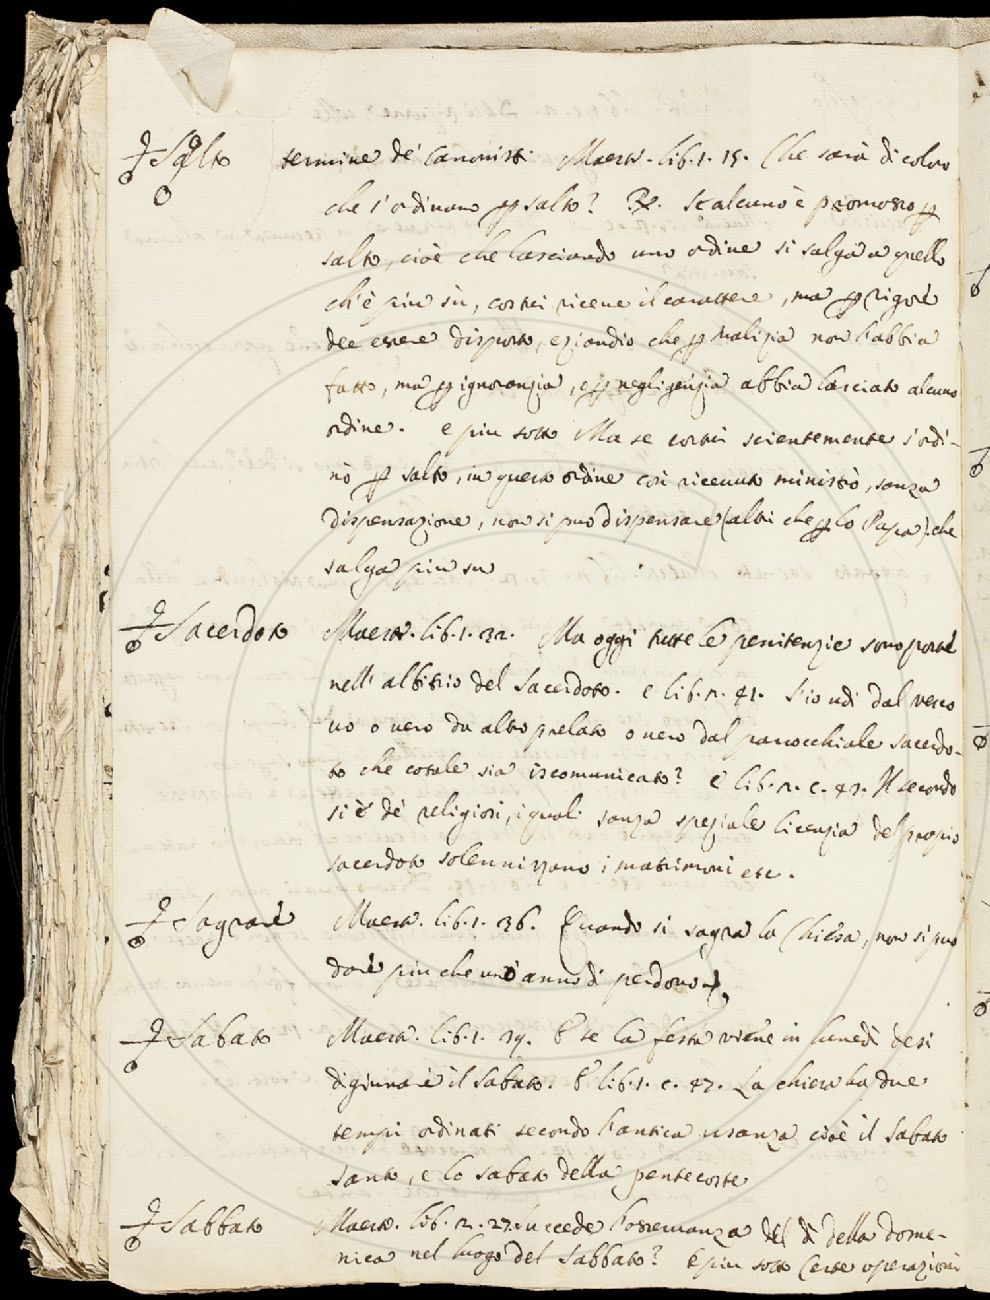 Salto termine de' Canonisti Maestr. lib. 1. 15. Che sarà di coloro
che s'ordinano ꝑ salto? ℞. Se alcuno è promosso ꝑ
salto, cioè che lasciando uno ordine si salga a quello
ch'è piu sù, costui riceve il carattere, ma ꝑ rigore
dee essere disposto, eziandio che ꝑ malizia non l'abbia
fatto, ma ꝑ ignoranzia, e ꝑ negligenzia abbia lasciato alcuno
ordine. e piu sotto Ma se costui scientemente s'ordi-
nò ꝑ salto, in questo ordine così ricevuto ministrò, sanza
dispensazione, non si può dispensare (altri che ꝑ lo Papa) che
salga piu su
Sacerdoto Maestr. lib. 1. 32. Ma oggi tutte le penitenzie sono poste
nell' albitrio del Sacerdoto. e lib. 2. 41. S'io udi dal vesco
vo o vero da altro prelato o vero dal parocchiale sacerdo-
to che cotale sia iscomunicato? e lib. 2. c. 47. Il secondo
si è de' religiosi, i quali sanza speziale licenzia del propio
sacerdoto solennizzano i matrimoni etc.
Sagrare Maestr. lib. 1. 36. Quando si sagra la Chiesa, non si può
dare piu che uno anno di perdono
Sabato Maestr. lib. 1. 29. E se la festa viene in lunedì desi
digiunare il Sabato. E lib. 1. c. 47. La chiesa ha due
tempi ordinati secondo l'antica usanza cioè il Sabato
Santo, e lo sabato della pentecoste
Sabbato Maestr. lib. 2. 27. Succede l'osservanza del dì della dome-
nica nel luogo del Sabbato? E piu sotto Certe operazioni